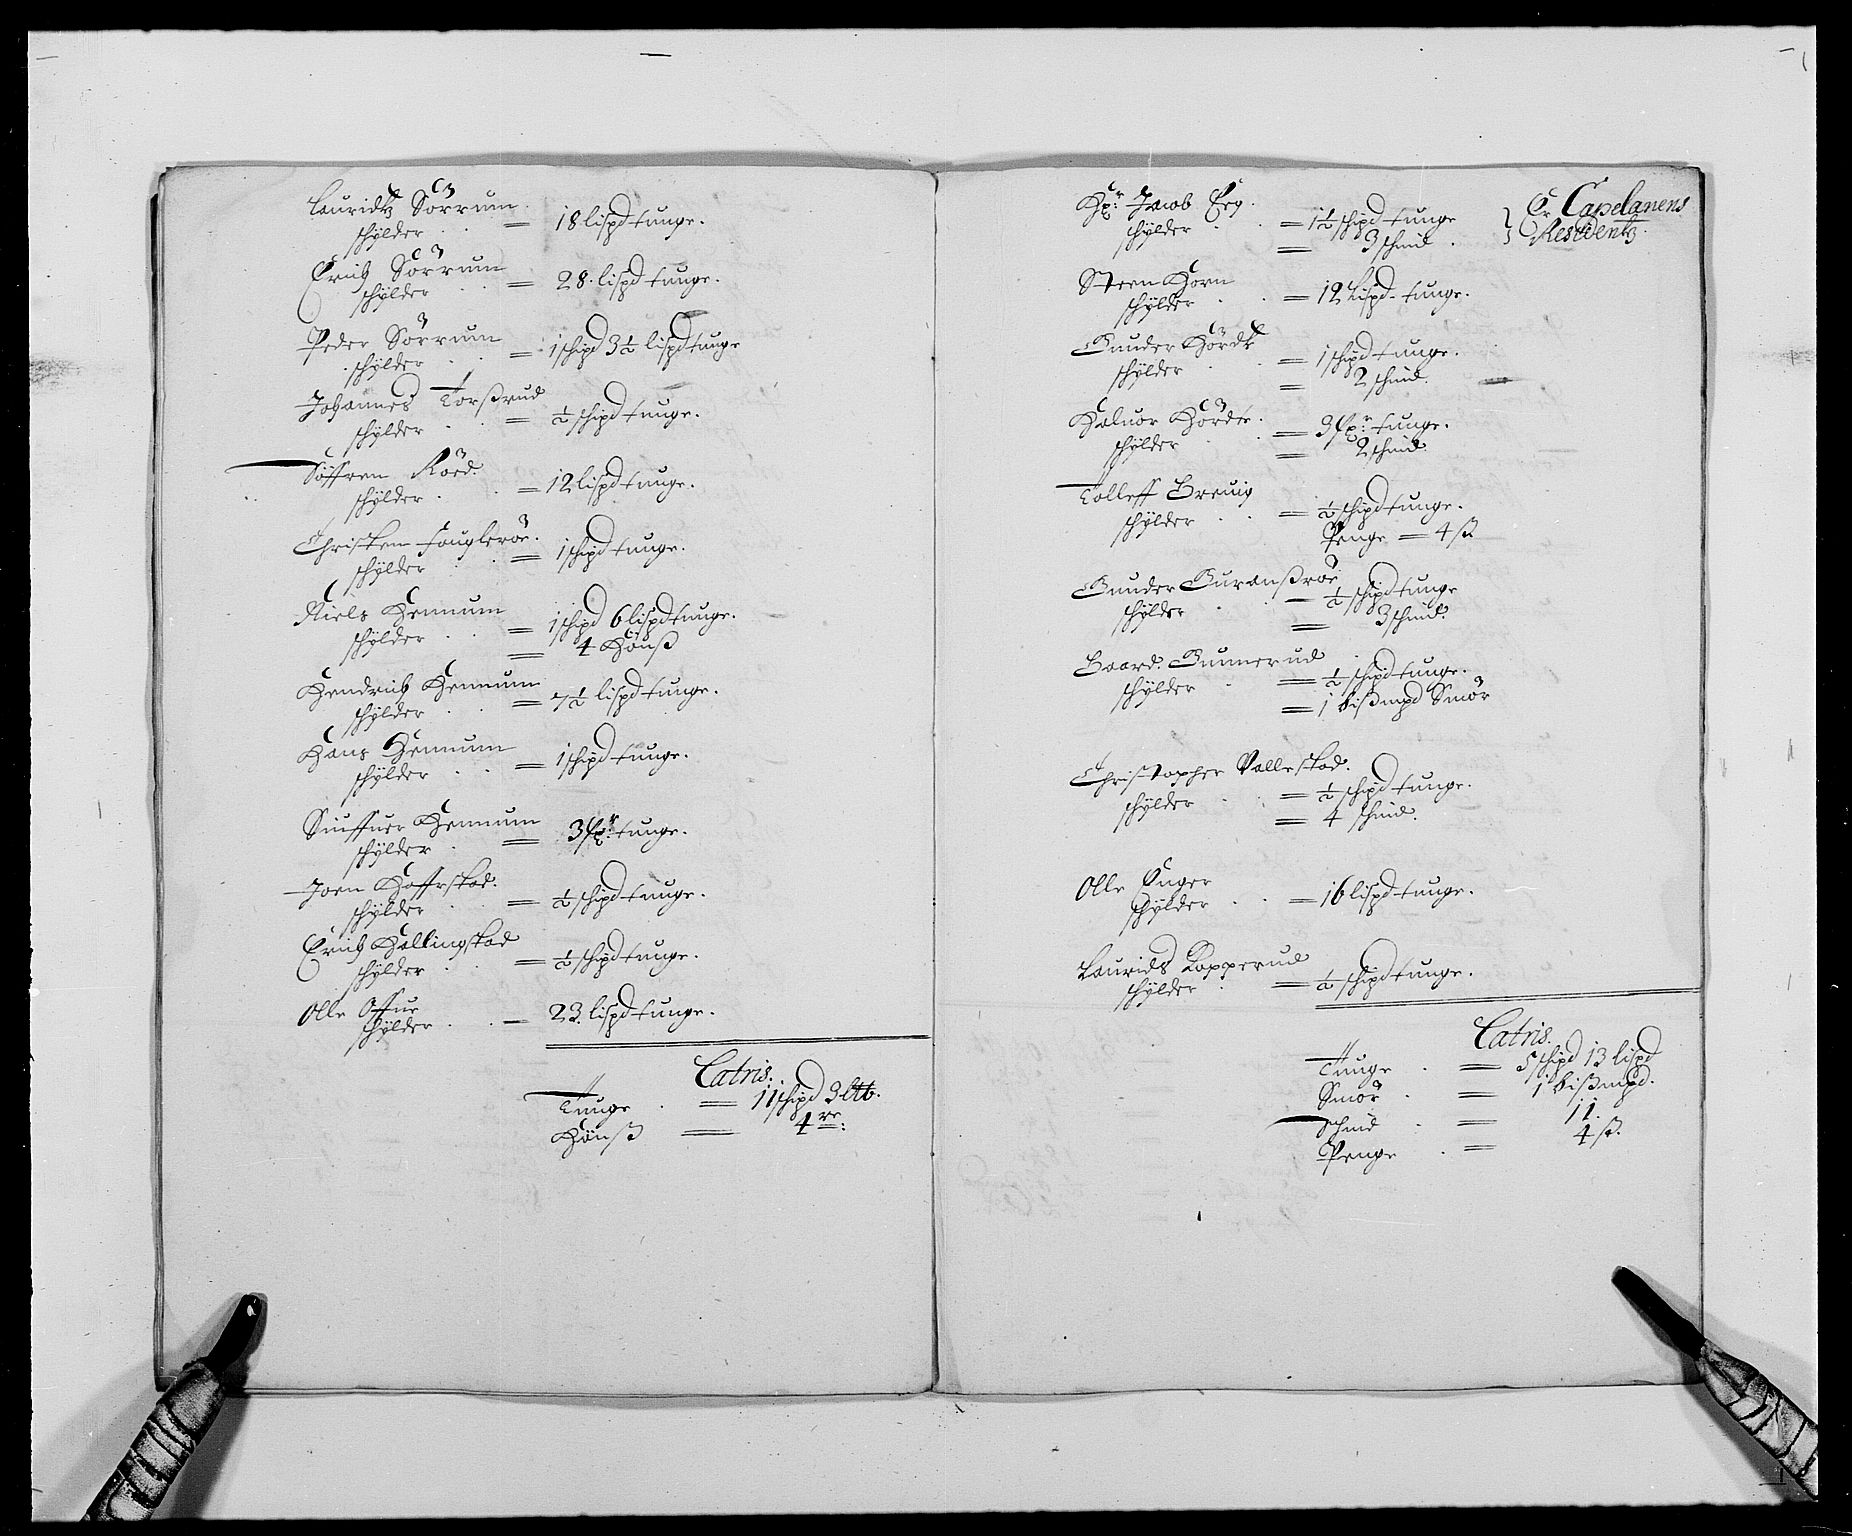 Lauridtz Sörrum.
schylder . . = 18 lispd tunge.
Erich Sörrum
schylder . . = 28. lispd tunge.
Peder Sörrum
schylder . . = 1 schipd 3½ lispd tunge
Johannes Torßrud
schylder . . = ½ schipd tunge.
Söffren Röed.
schylder . . = 12 lispd tunge.
Christen Fougleröe.
schylder . . = 1 schipd tunge.
Niels Hennum
schylder . . = 1 schipd 6 lispd tunge.
= 4 Hönß
Hendrich Hennum
schylder . . = 7½ lispd tunge.
Hans Hennum
schylder . . = 1 schipd tunge.
Siuffuer Hennum
schylder . = 3 fxr: tunge.
Joen Hoffrstad.
schylder . . = ½ schipd tunge.
Erich Hallingstad
schylder . . = ½ schipd tunge.
Olle Offue
schylder . . = 23. lispd tunge.
Latris.
Tunge . = 11 schipd 3 ltb.
Hönß = 4re:
Hr: Jacob Eeg.
schylder . . = 1½ schipd tunge
= 3 schind .
Er Capelanens
Residentz.
Steen Horn
schylder . . = 12 lispd. tunge.
Gunder Hördtz
schylder . . = 1 schipd tunge.
= 2 schind.
Haluor Hördte.
schylder . . = 3 fxr: tunge.
= 2 schind.
Tolleff Breuig
schylder . . = ½ schipd tunge.
Penge = 4 ß
Gunder Guranßröe
schylder . . = ½ schipd tunge
= 3 schind.
Baard. Gunnerud
schylder . = ½ schipd tunge.
= 1 bißmpd Smör
Christopher Vallestad.
schylder . . = ½ schipd tunge.
= 4 schind.
Olle Enger
schylder . . = 16 lispd tunge.
Laurids Kopperud
schylder . = ½ schipd tunge.
Latris.
Tunge . = 5 schipd 13 lispd
Smör . = 1 bißmpd.
Schind . = 11.
Penge . = 4 ß.